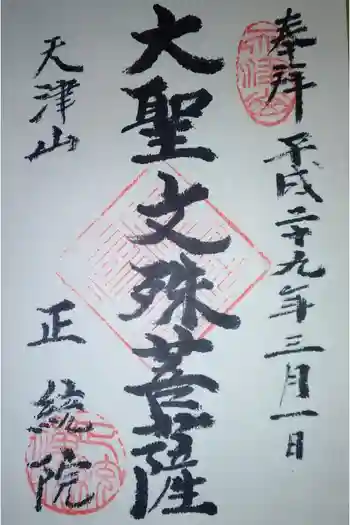 奉拝
平成二十九年三月一日
大聖文殊菩薩
天津山
正統院